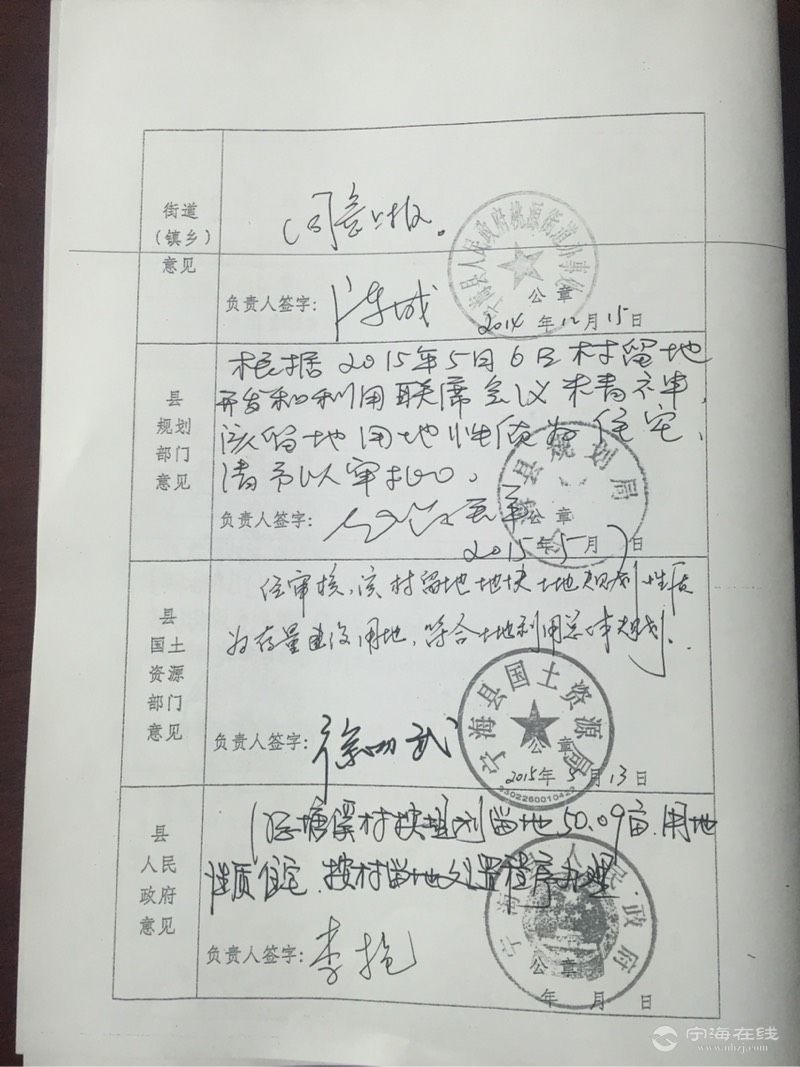 街道
（镇乡）
意见
同意上报。
宁海县人民政府桃源街道办事处
负责人签字：
公章
2014年12月15日
县
规划
部门
意见
根据2015年5月6日村留地
开发和利用联席会议精神，
该留地用地性质为住宅，
请予以审批。
县规划局
负责人签字：
公章
2015年5月7日
县
国土
资源
部门
意见
经审核，该村留地地块土地规划性质
为存量建设用地，符合土地利用总体规划.
宁海县国土资源局
3302260010422
负责人签字：
公章
2015年5月13日
县
人民
政府
意见
塘溪村按规划留地50.09亩.用地
性质住宅.按村留地处置程序办理
宁海县人民政府
负责人签字：
公章
年 月 日
宁海在线
www.nhzj.com